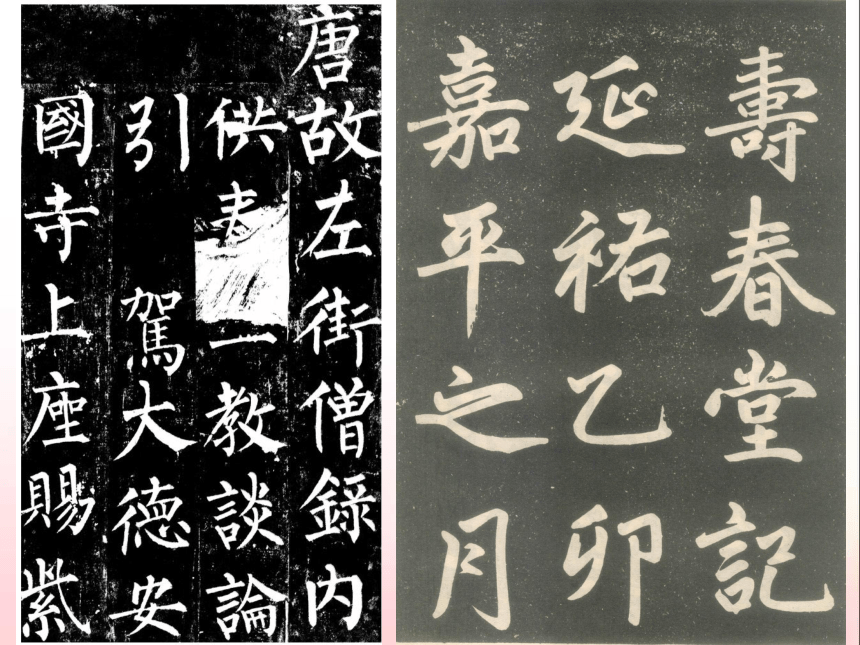 唐故左街僧錄内
供教談論
引 駕大德安
國寺上座賜紫
壽春堂記
延祐乙卯
嘉平之月